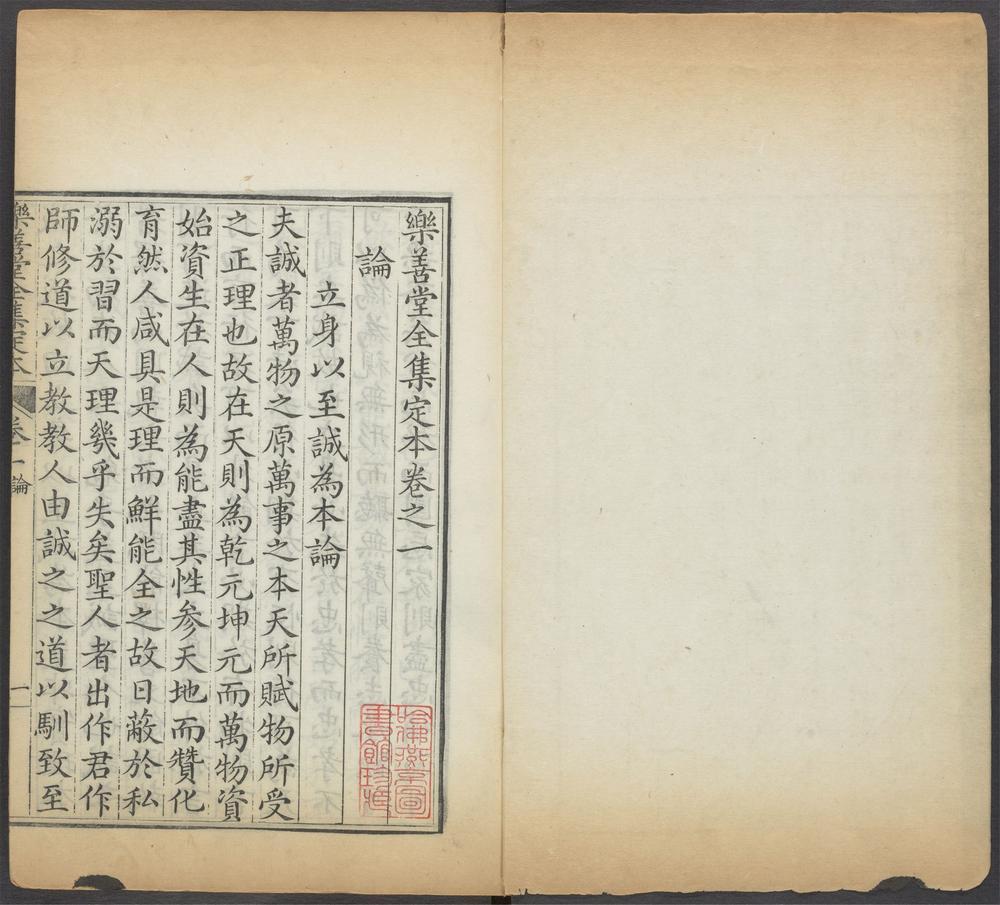 樂善堂全集定本卷之一
論
立身以至誠為本論
夫誠者萬物之原萬事之本天所賦物所受
之正理也故在天則為乾元坤元而萬物資
始資生在人則為能盡其性參天地而贊化
育然人咸具是理而鮮能全之故日蔽於私
溺於習而天理幾乎失矣聖人者出作君作
師修道以立教教人由誠之之道以馴致至
樂善堂全集定本 卷一 論 一
哈佛燕京圖
書館珍藏